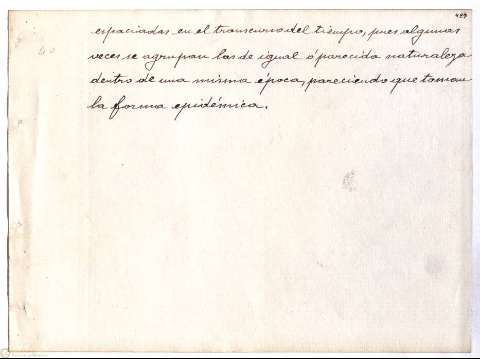 espaciadas en el transcurso del tiempo, pues algunas
veces se agrupan las de igual ó parecida naturaleza
dentro de una misma época, pareciendo que toman
la forma epidémica.